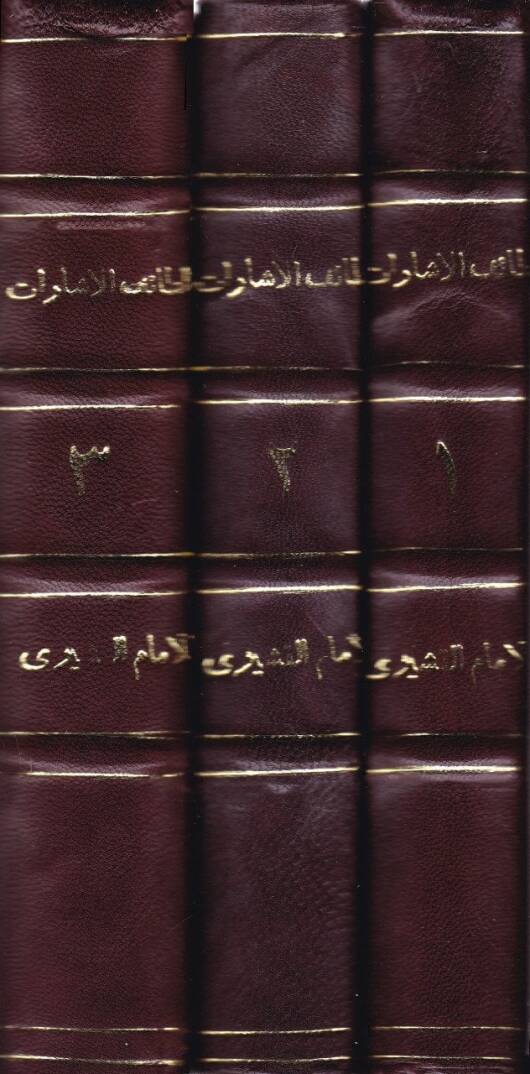 لطائف الاشارات
١
الامام القشيرى
لطائف الاشارات
٢
الامام القشيرى
لطائف الاشارات
٣
الامام